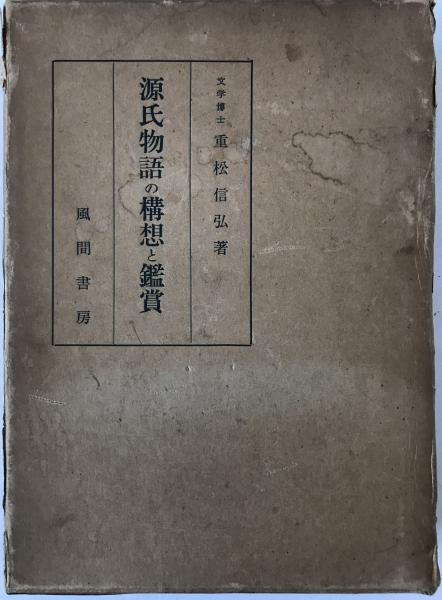 文学博士 重松信弘著
源氏物語の構想と鑑賞
風間書房